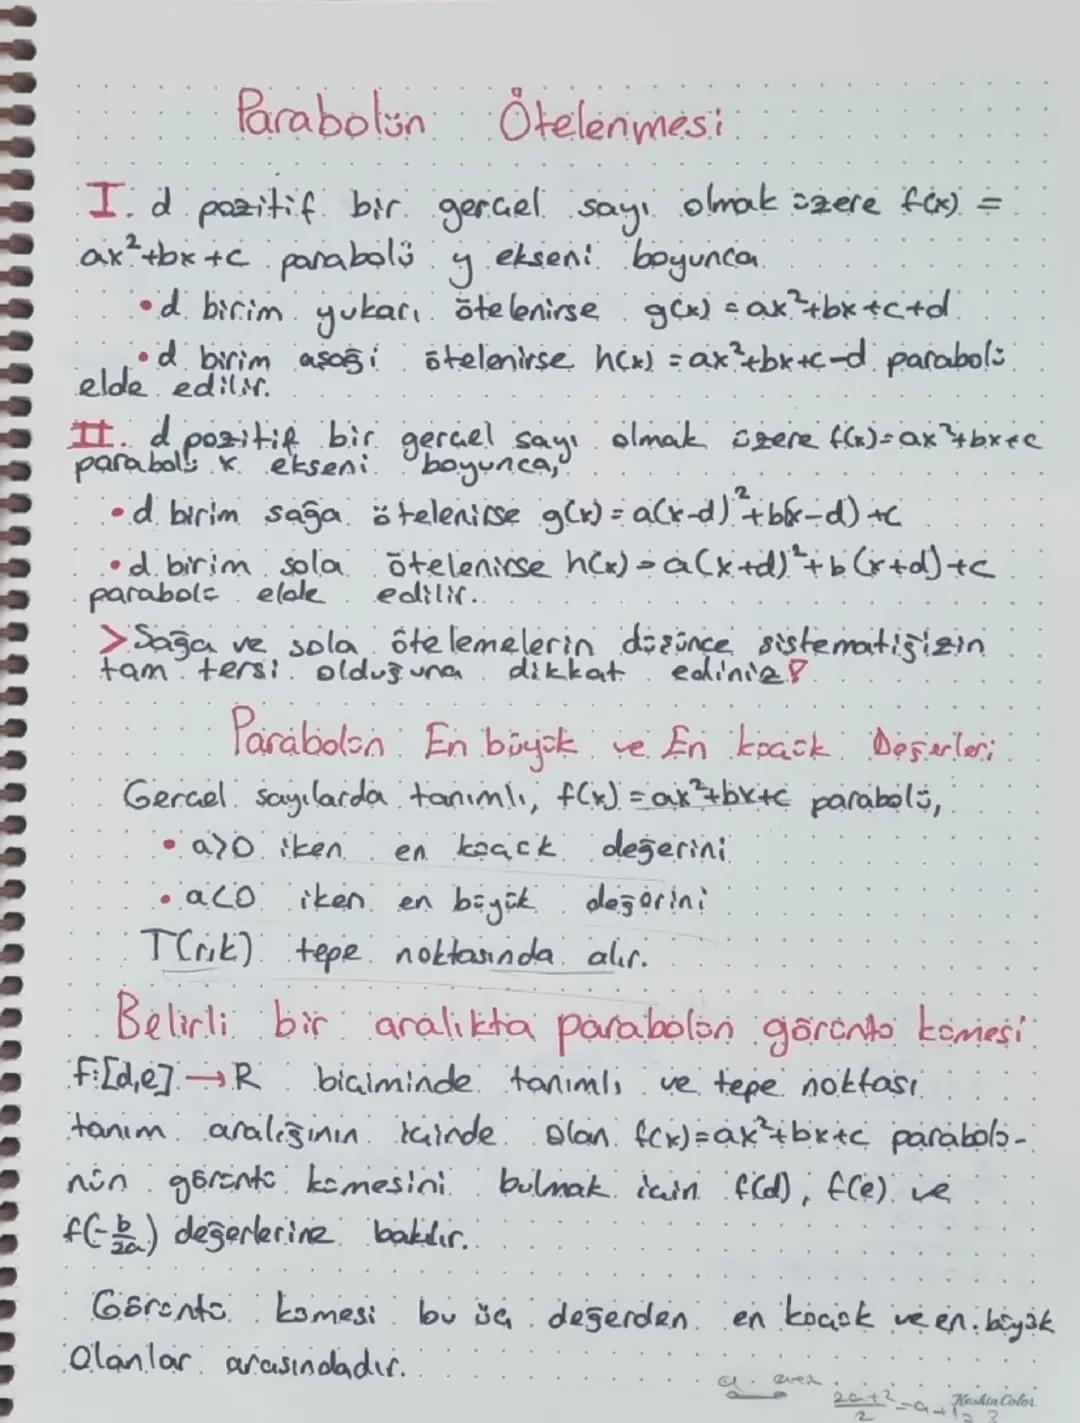 Parabolün Ötelenmesi
I. d pozitif bir gerçel sayı olmak üzere f(x) =
ax²+bx+c parabolü y ekseni boyunca
• d birim yukarı ötelenirse g(x) = ax²+bx+c+d
• d birim aşağı ötelenirse h(x) = ax²+bx+c-d parabolü
elde edilir.
II. d pozitif bir gerçel sayı olmak üzere f(x)=ax²+bx+c
parabolü x ekseni boyunca,
• d birim sağa ötelenirse g(x) = a(x-d)²+b(x-d)+c
• d birim sola ötelenirse h(x) = a(x+d)²+b(x+d)+c
parabolü elde edilir.
> Sağa ve sola ötelemelerin düşünce sistematiğizin
tam tersi olduğuna dikkat ediniz!
Parabolün En büyük ve En küçük Değerleri
Gerçel sayılarda tanımlı, f(x) = ax²+bx+c parabolü,
• a>0 iken en küçük değerini
• a<0 iken en büyük değerini
T(r,k) tepe noktasında alır.
Belirli bir aralıkta parabolün görüntü kümesi
f:[d,e] → R biçiminde tanımlı ve tepe noktası
tanım aralığının içinde olan f(x)=ax²+bx+c parabolü-
nün görüntü kümesini bulmak için f(d), f(e) ve
f(-b/2a) değerlerine bakılır.
Görüntü kümesi bu üç değerden en küçük ve en büyük
Olanlar arasındadır.
Keskin Color